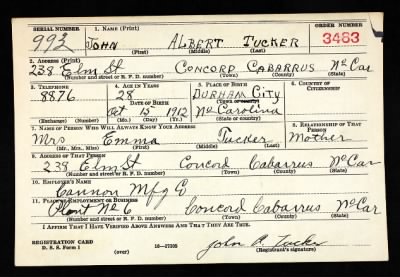 SERIAL NUMBER 1. NAME (Print) ORDER NUMBER
993 JOHN ALBERT TUCKER 3483
(First) (Middle) (Last)
2. ADDRESS (Print)
238 Elm St CONCORD CABARRUS No Car
(Number and street or R. F. D. number) (Town) (County) (State)
3. TELEPHONE 4. AGE IN YEARS 5. PLACE OF BIRTH 6. COUNTRY OF CITIZENSHIP
8876 28 DURHAM City
DATE OF BIRTH (Town or county)
Oct 15 1912 No Carolina
(Exchange) (Number) (Mo.) (Day) (Yr.) (State or country)
7. NAME OF PERSON WHO WILL ALWAYS KNOW YOUR ADDRESS 8. RELATIONSHIP OF THAT PERSON
Mrs Emma Tucker Mother
(Mr., Mrs., Miss) (First) (Middle) (Last)
9. ADDRESS OF THAT PERSON
239 Elm St Concord Cabarrus No Car
(Number and street or R. F. D. number) (Town) (County) (State)
10. EMPLOYER'S NAME
Cannon Mfg Co
11. PLACE OF EMPLOYMENT OR BUSINESS
Plant No 6 Concord Cabarrus No Car
(Number and street or R. F. D. number) (Town) (County) (State)
I AFFIRM THAT I HAVE VERIFIED ABOVE ANSWERS AND THAT THEY ARE TRUE.
REGISTRATION CARD
D. S. S. Form 1 (over) 16—17105 John A. Tucker
(Registrant's signature)